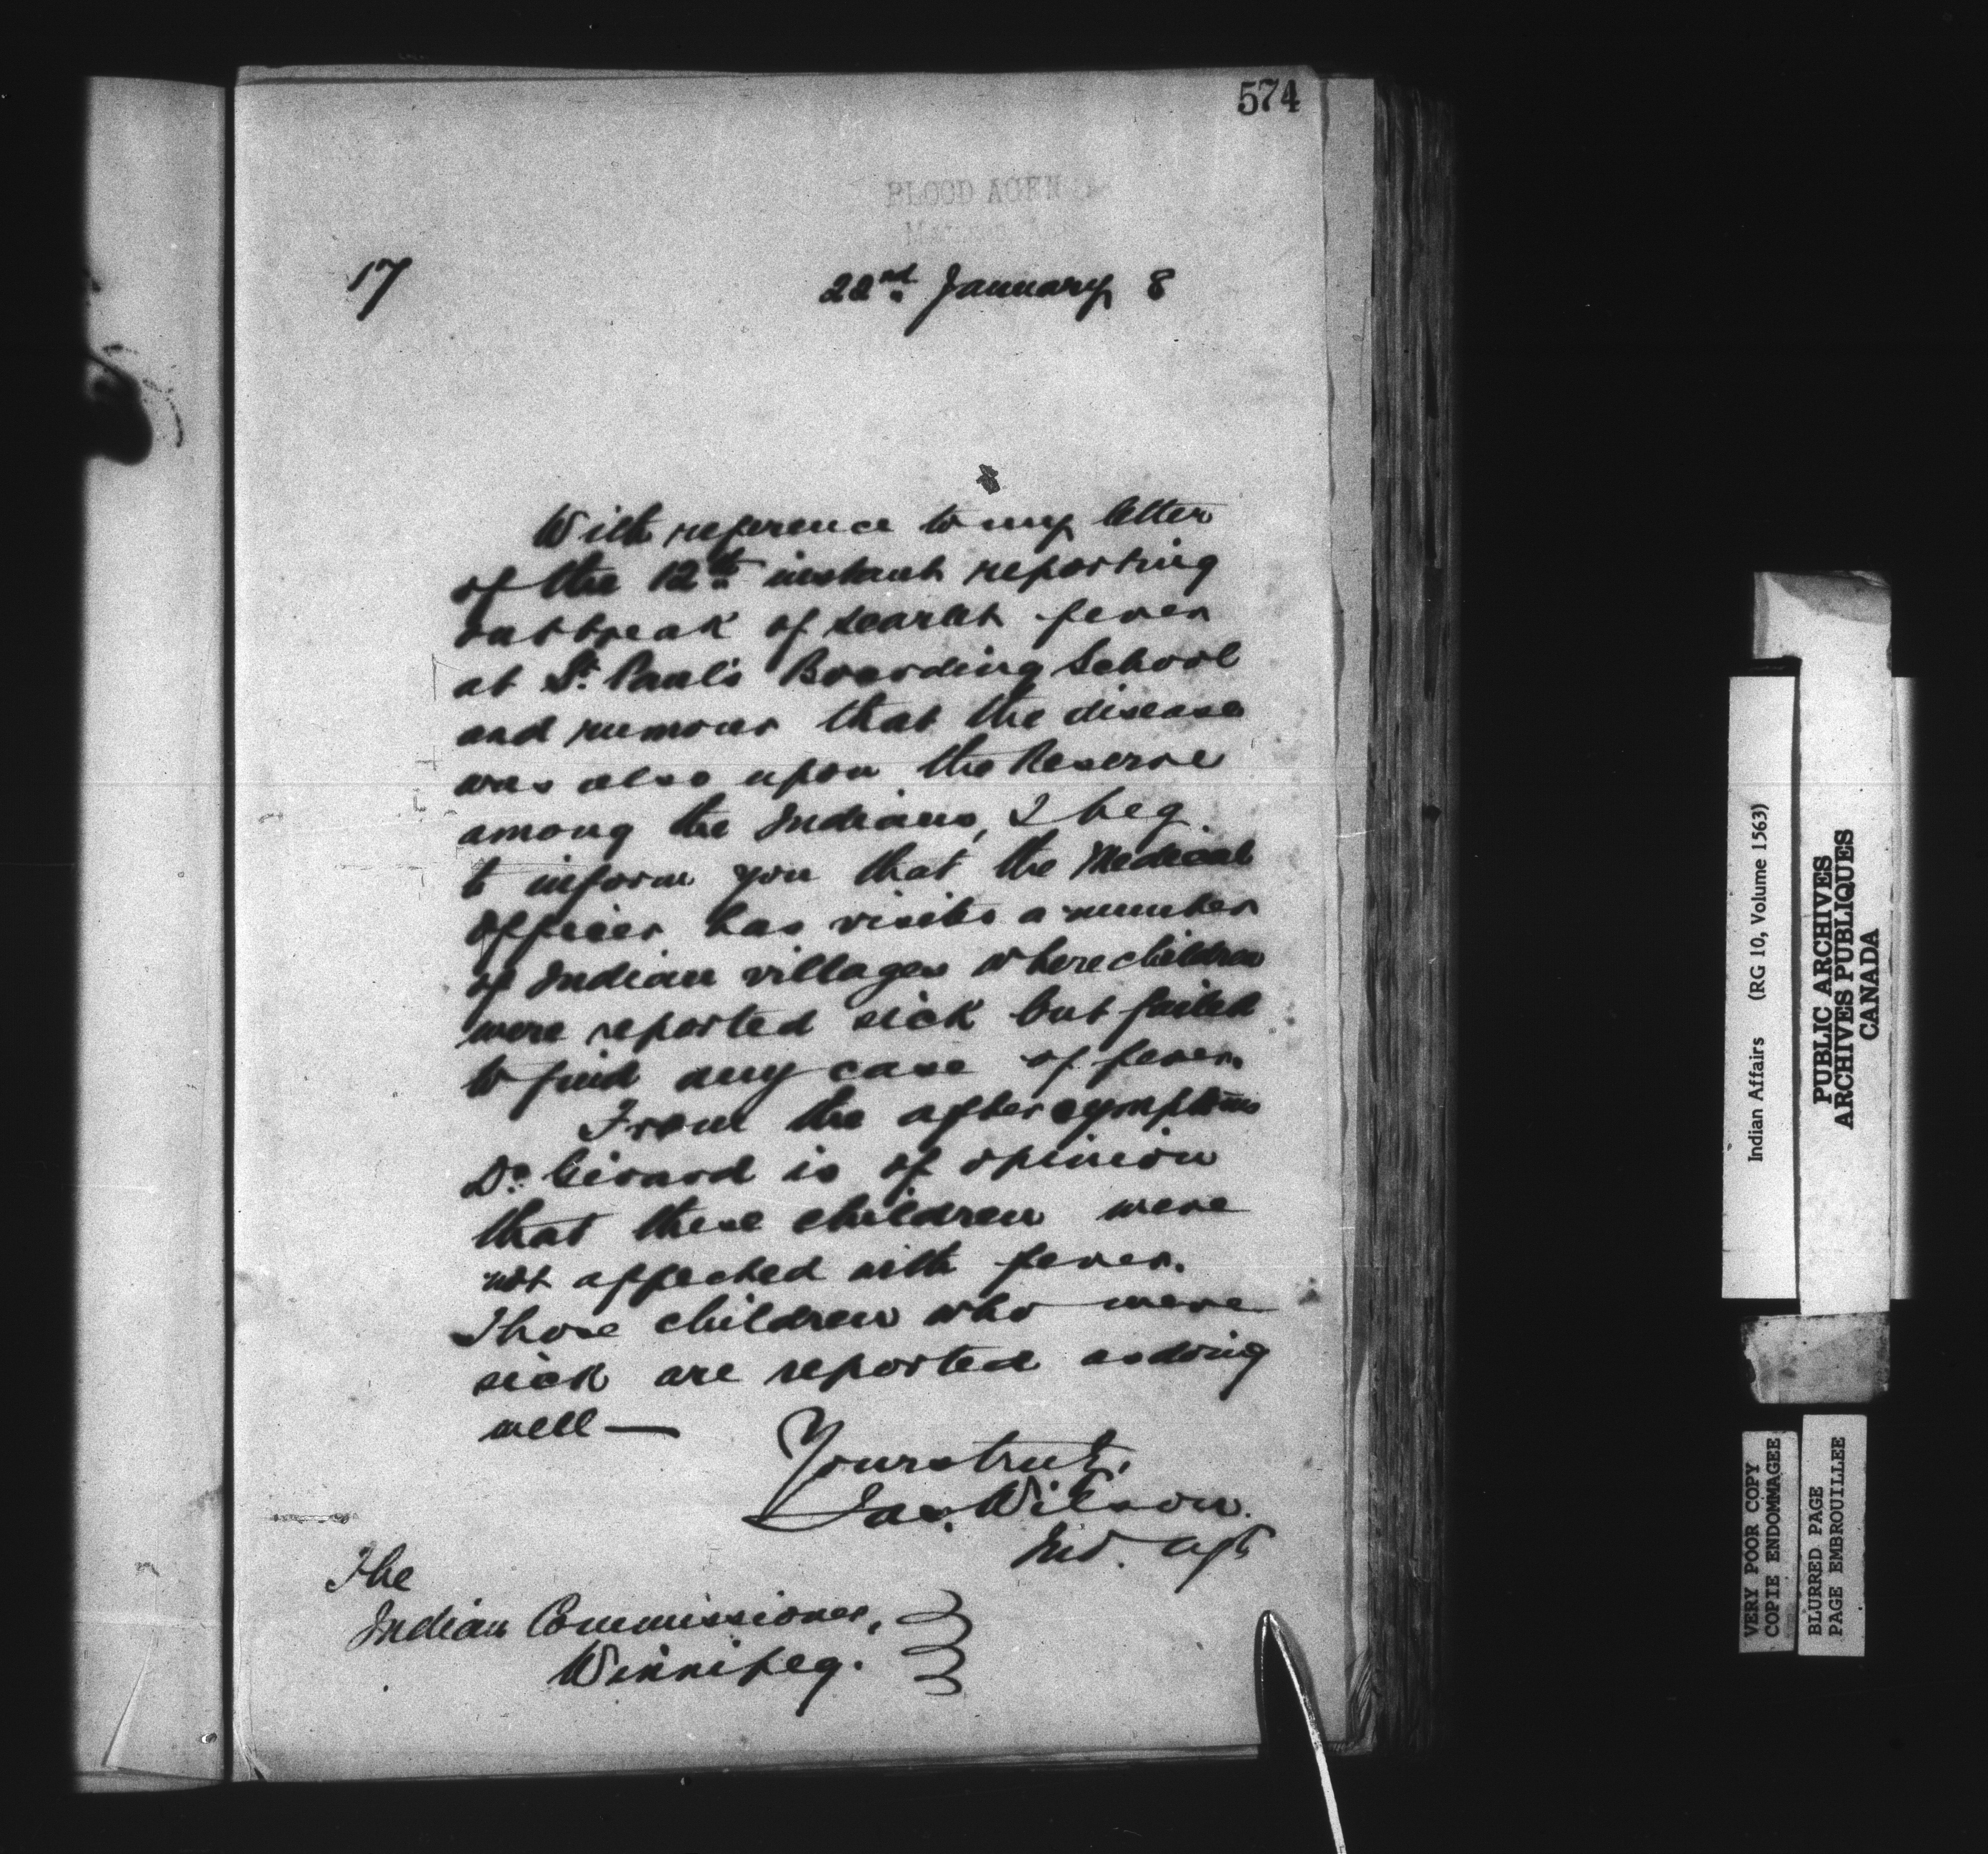 574
BLOOD AGEN
17
22nd January 8
With reference to my letter
of the 12th instant reporting
outbreak of scarlet fever
at St. Paul's Boarding School
and rumour that the disease
was also upon the Reserve
among the Indians, I beg
to inform you that the Medical
Officer has visits a number
of Indian villages where children
were reported sick but failed
to find any case of fever.
From the after symptoms
Dr. Girard is of opinion
that these children were
not affected with fever.
Those children who were
sick are reported as doing
well —
Yours truly,
Jas. Wilson.
Ind. Agt
The
Indian Commissioner,
Winnipeg.
Indian Affairs (RG 10, Volume 1563)
PUBLIC ARCHIVES
ARCHIVES PUBLIQUES
CANADA
VERY POOR COPY
COPIE ENDOMMAGEE
BLURRED PAGE
PAGE EMBROUILLEE